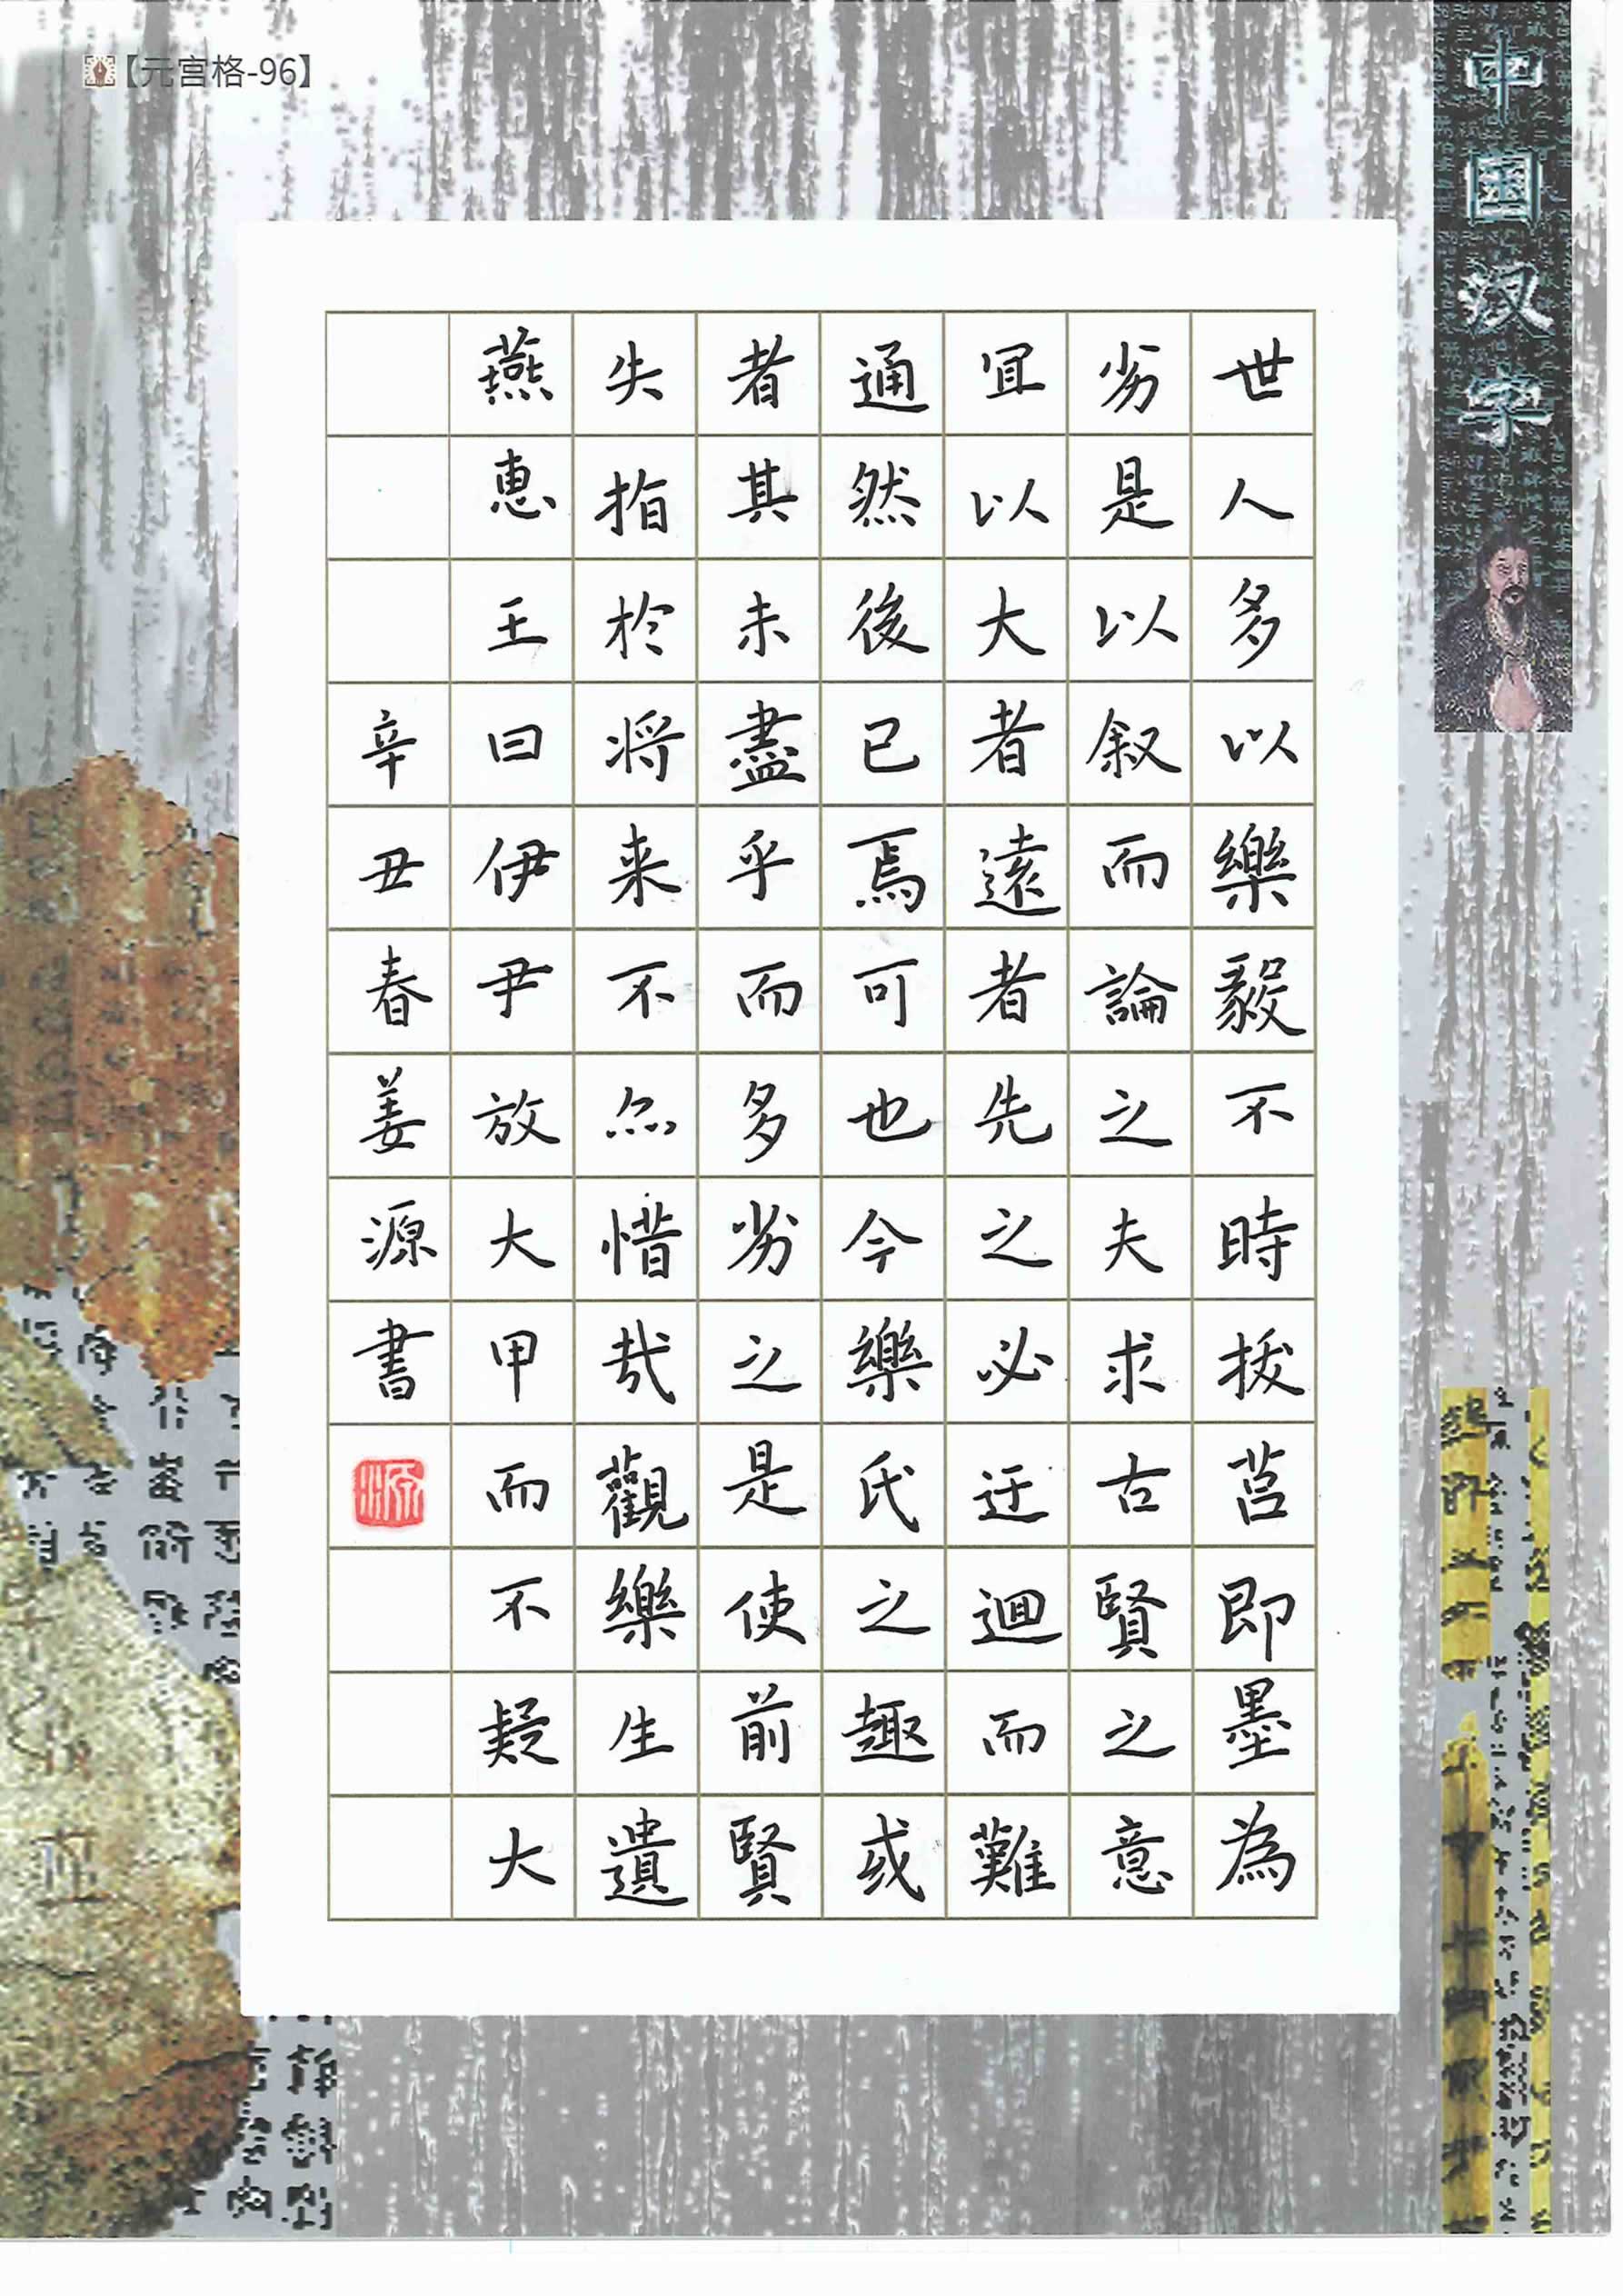 【元宫格-96】
中国汉字
世人多以樂毅不時拔莒即墨為
劣是以叙而論之夫求古賢之意
宜以大者遠者先之必迂迴而難
通然後已焉可也今樂氏之趣或
者其未盡乎而多劣之是使前賢
失指於将来不亦惜哉觀樂生遺
燕惠王曰伊尹放大甲而不疑大
辛丑春姜源書
源